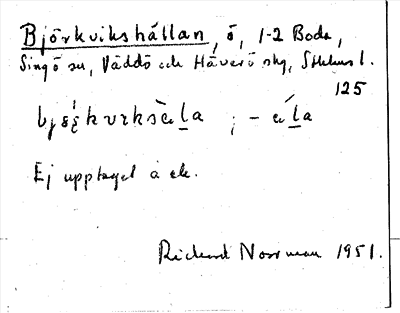 Björkvikshällan, ö, 1-2 Boda,
Singö sn, Väddö och Häverö skg, Sthlms l.
125
Ej upptaget å ek.
Rickard Norrman 1951.